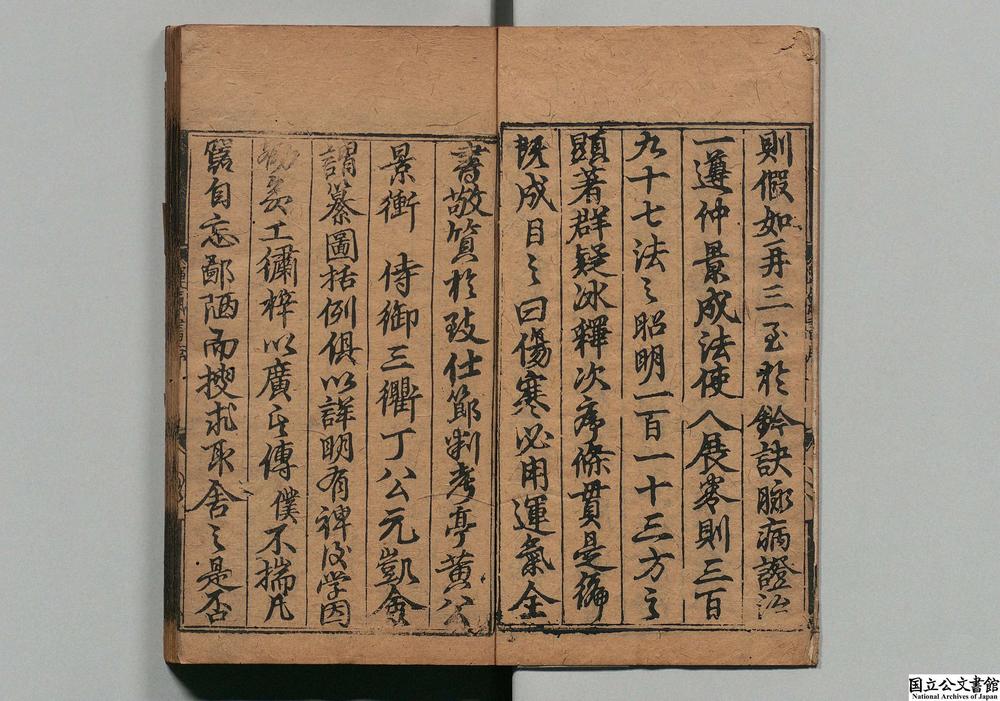 則假如再三至於鈐訣脉病證治
一遵仲景成法使人展卷則三百
九十七法之昭明一百一十三方之
顕著群疑冰釋次序條貫是編
既成目之曰傷寒必用運氣全
書敬質於致仕節判考亭黄公
景衝 侍御三衢丁公元凱僉
謂纂圖括例俱以詳明有裨後学因
勸募工繡梓以廣其傳僕不揣凡
窶自忘鄙陋而搜求取舍之是否
国立公文書館
National Archives of Japan